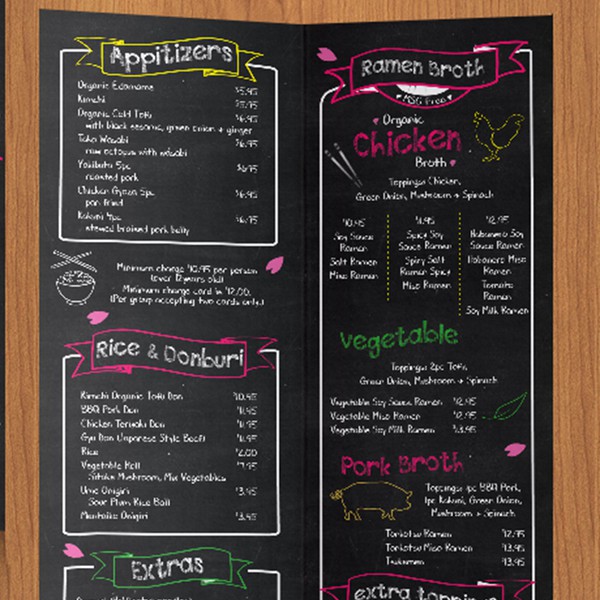 Appitizers
Organic Edamame $5.95
Kimchi
Organic Cold Tofu $6.95
with black sesame, green onion + ginger
Tako Wasabi $6.95
raw octopus with wasabi
Yakibuta 5pc $6.95
roasted pork
Chicken Gyoza 5pc $6.95
pan fried
Kakuni 4pc $6.95
stewed braised pork belly
Minimum charge $10.95 per person
(over 12years old)
Minimum charge card is $12.00.
(Per group accepting two cards only.)
Rice & Donburi
Kimchi Organic Tofu Don $10.95
BBQ Pork Don $11.95
Chicken Teriyaki Don $11.95
Gyu Don (Japanese Style Beef) $11.95
Rice $2.00
Vegetable Roll $7.95
Shitake Mushroom, Mix Vegetables
Ume Onigiri $3.95
Sour Plum Rice Ball
Mentaiko Onigiri $3.95
Extras
Ramen Broth
MSG Free
Organic
Chicken
Broth
Toppings: Chicken,
Green Onion, Mushroom + Spinach
$10.95
Soy Sauce
Ramen
Salt Ramen
Miso Ramen
$11.95
Spicy Soy
Sauce Ramen
Spicy Salt
Ramen Spicy
Miso Ramen
$12.95
Habanero Soy
Sauce Ramen
Habanero Miso
Ramen
Tomato
Ramen
Soy Milk Ramen
Vegetable
Toppings: 2pc Tofu,
Green Onion, Mushroom + Spinach
Vegetable Soy Sauce Ramen $12.95
Vegetable Miso Ramen $12.95
Vegetable Soy Milk Ramen $13.95
Pork Broth
Toppings: 1pc BBQ Pork,
1pc Kakuni, Green Onion,
Mushroom + Spinach
Tonkotsu Ramen $12.95
Tonkotsu Miso Ramen $13.95
Tsukemen $13.95
extra toppings